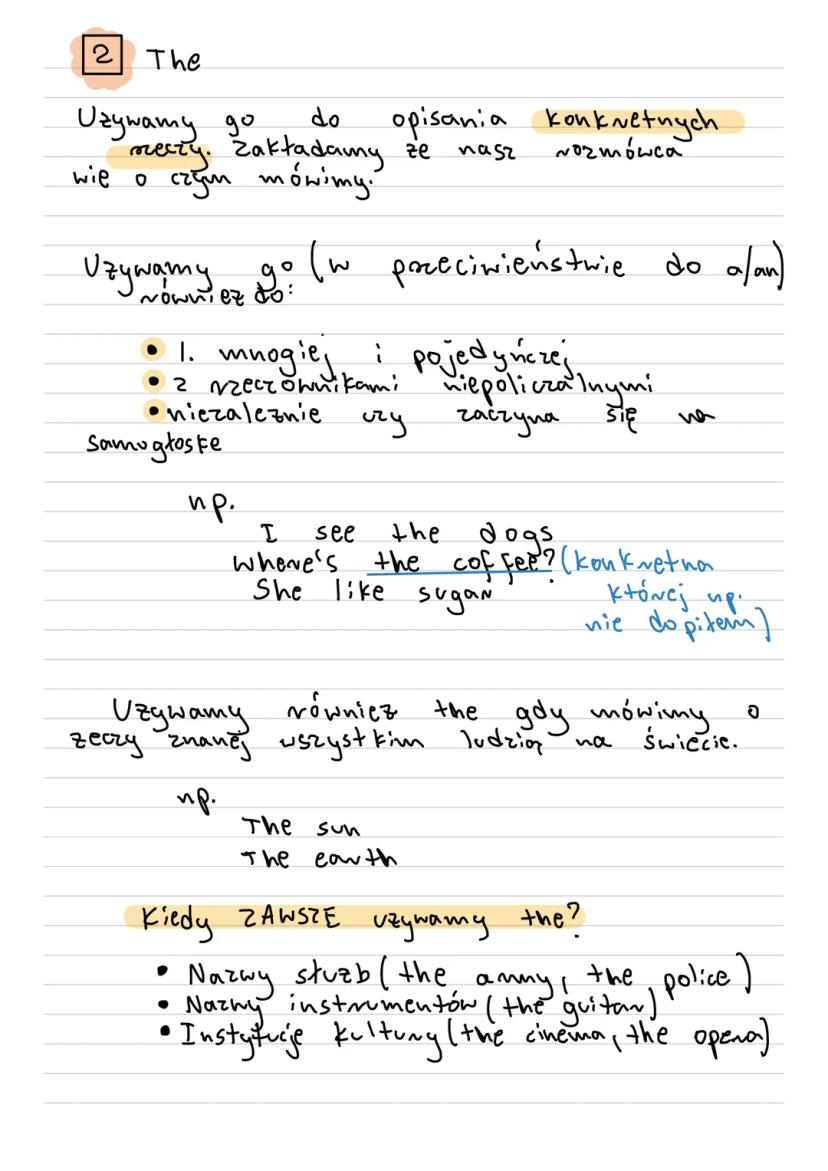 2 The
Używamy go do opisania konkretnych
rzeczy. Zakładamy że nasz rozmówca
wie o czym mówimy.
Używamy go (w przeciwieństwie do a/an)
również do:
• l. mnogiej i pojedyńczej
• z rzeczownikami niepoliczalnymi
• niezależnie czy zaczyna się na
samogłoskę
np.
I see the dogs
Where's the coffee? (konkretna
She like sugar której np.
nie dopiłem)
Używamy również the gdy mówimy o
żeczy znanej wszystkim ludzią na świecie.
np.
The sun
The earth
Kiedy ZAWSZE używamy the?
• Nazwy służb (the army, the police)
• Nazwy instrumentów (the guitar)
• Instytucje kultury (the cinema, the opera)